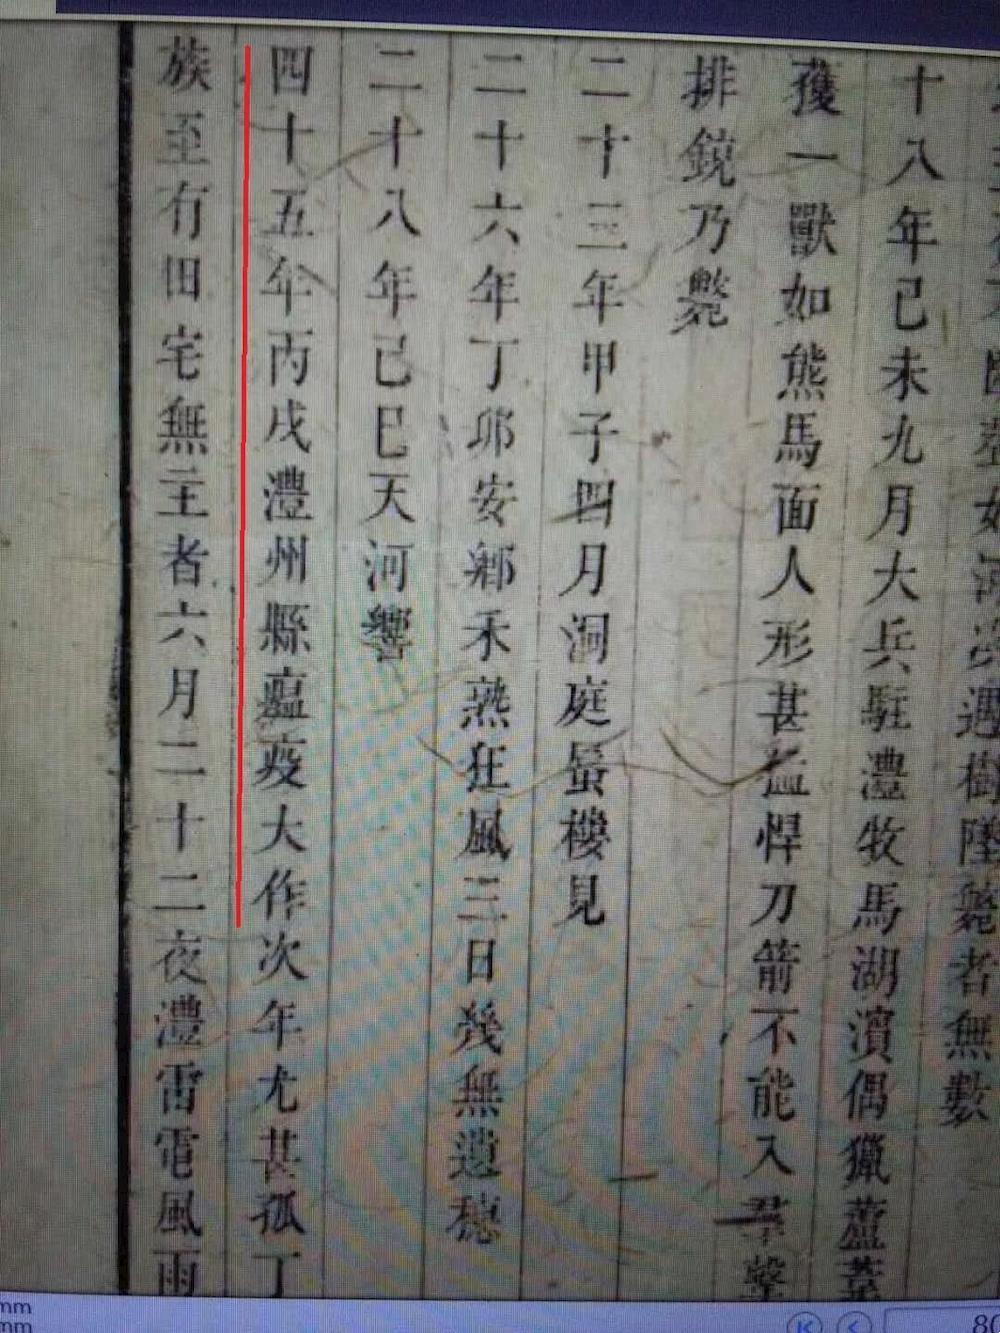 遇樹墜斃者無數
十八年己未九月大兵駐澧牧馬湖濱偶獵蘆葦
獲一獸如熊馬面人形甚猛悍刀箭不能入羣擊
排鏡乃斃
二十三年甲子四月洞庭蜃樓見
二十六年丁卯安鄉禾熟狂風三日幾無遺穗
二十八年己巳天河響
四十五年丙戌澧州縣瘟疫大作次年尤甚孤丁
族至有田宅無主者六月二十二夜澧雷電風雨
mm
mm
80